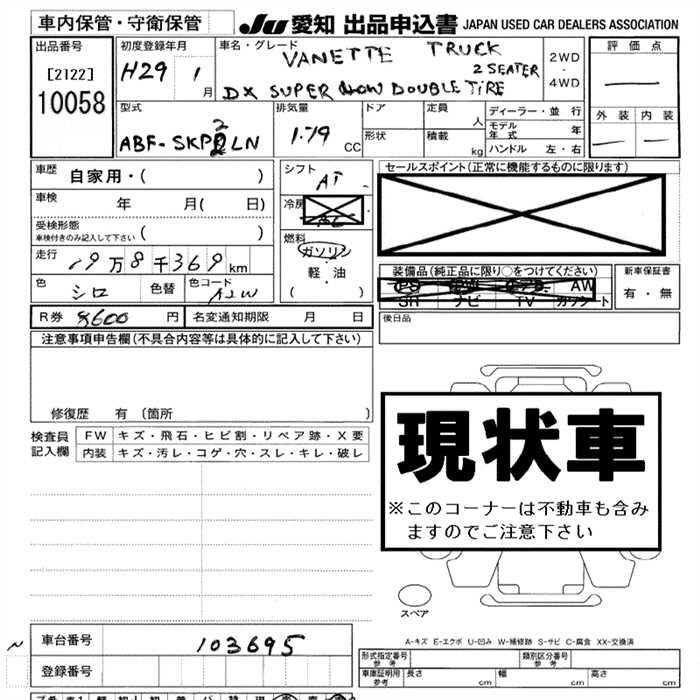 車内保管・守衛保管
JU 愛知 出品申込書 JAPAN USED CAR DEALERS ASSOCIATION
出品番号
[2122]
10058
初度登録年月
H29 1 月
車名・グレード
VANETTE TRUCK
2 SEATER
DX SUPER LOW DOUBLE TIRE
2WD
・
4WD
評価点
外装 内装
型式
ABF-SKP2LN
排気量
1.79 CC
ドア
形状
定員 人
積載 kg
ディーラー・並行
モデル年式 年
ハンドル 左・右
車歴 自家用・( )
車検 年 月( 日)
受検形態
車検付きのみ記入して下さい ( )
走行 19万8千369km
色 シロ 色替 色コード
シフト AT
冷房
燃料
ガソリン
・
軽・油
( )
セールスポイント(正常に機能するものに限ります)
装備品(純正品に限り○をつけてください)
PS PW エアB AW
SR ナビ TV ガソシート
新車保証書
有・無
後日品
R券 8600 円 名変通知期限 月 日
注意事項申告欄(不具合内容等は具体的に記入して下さい)
修復歴 有〔箇所 〕
検査員記入欄
FW キズ・飛石・ヒビ割・リペア跡・X要
内装 キズ・汚レ・コゲ・穴・スレ・キレ・破レ
現状車
※このコーナーは不動車も含み
ますのでご注意下さい
スペア
A-キズ E-エクボ U-凹み W-補修跡 S-サビ C-腐食 XX-交換済
車台番号 103695
登録番号
形式指定番号 参考
類別区分番号 参考
車庫証明用 参考 長さ cm 幅 cm 高さ cm